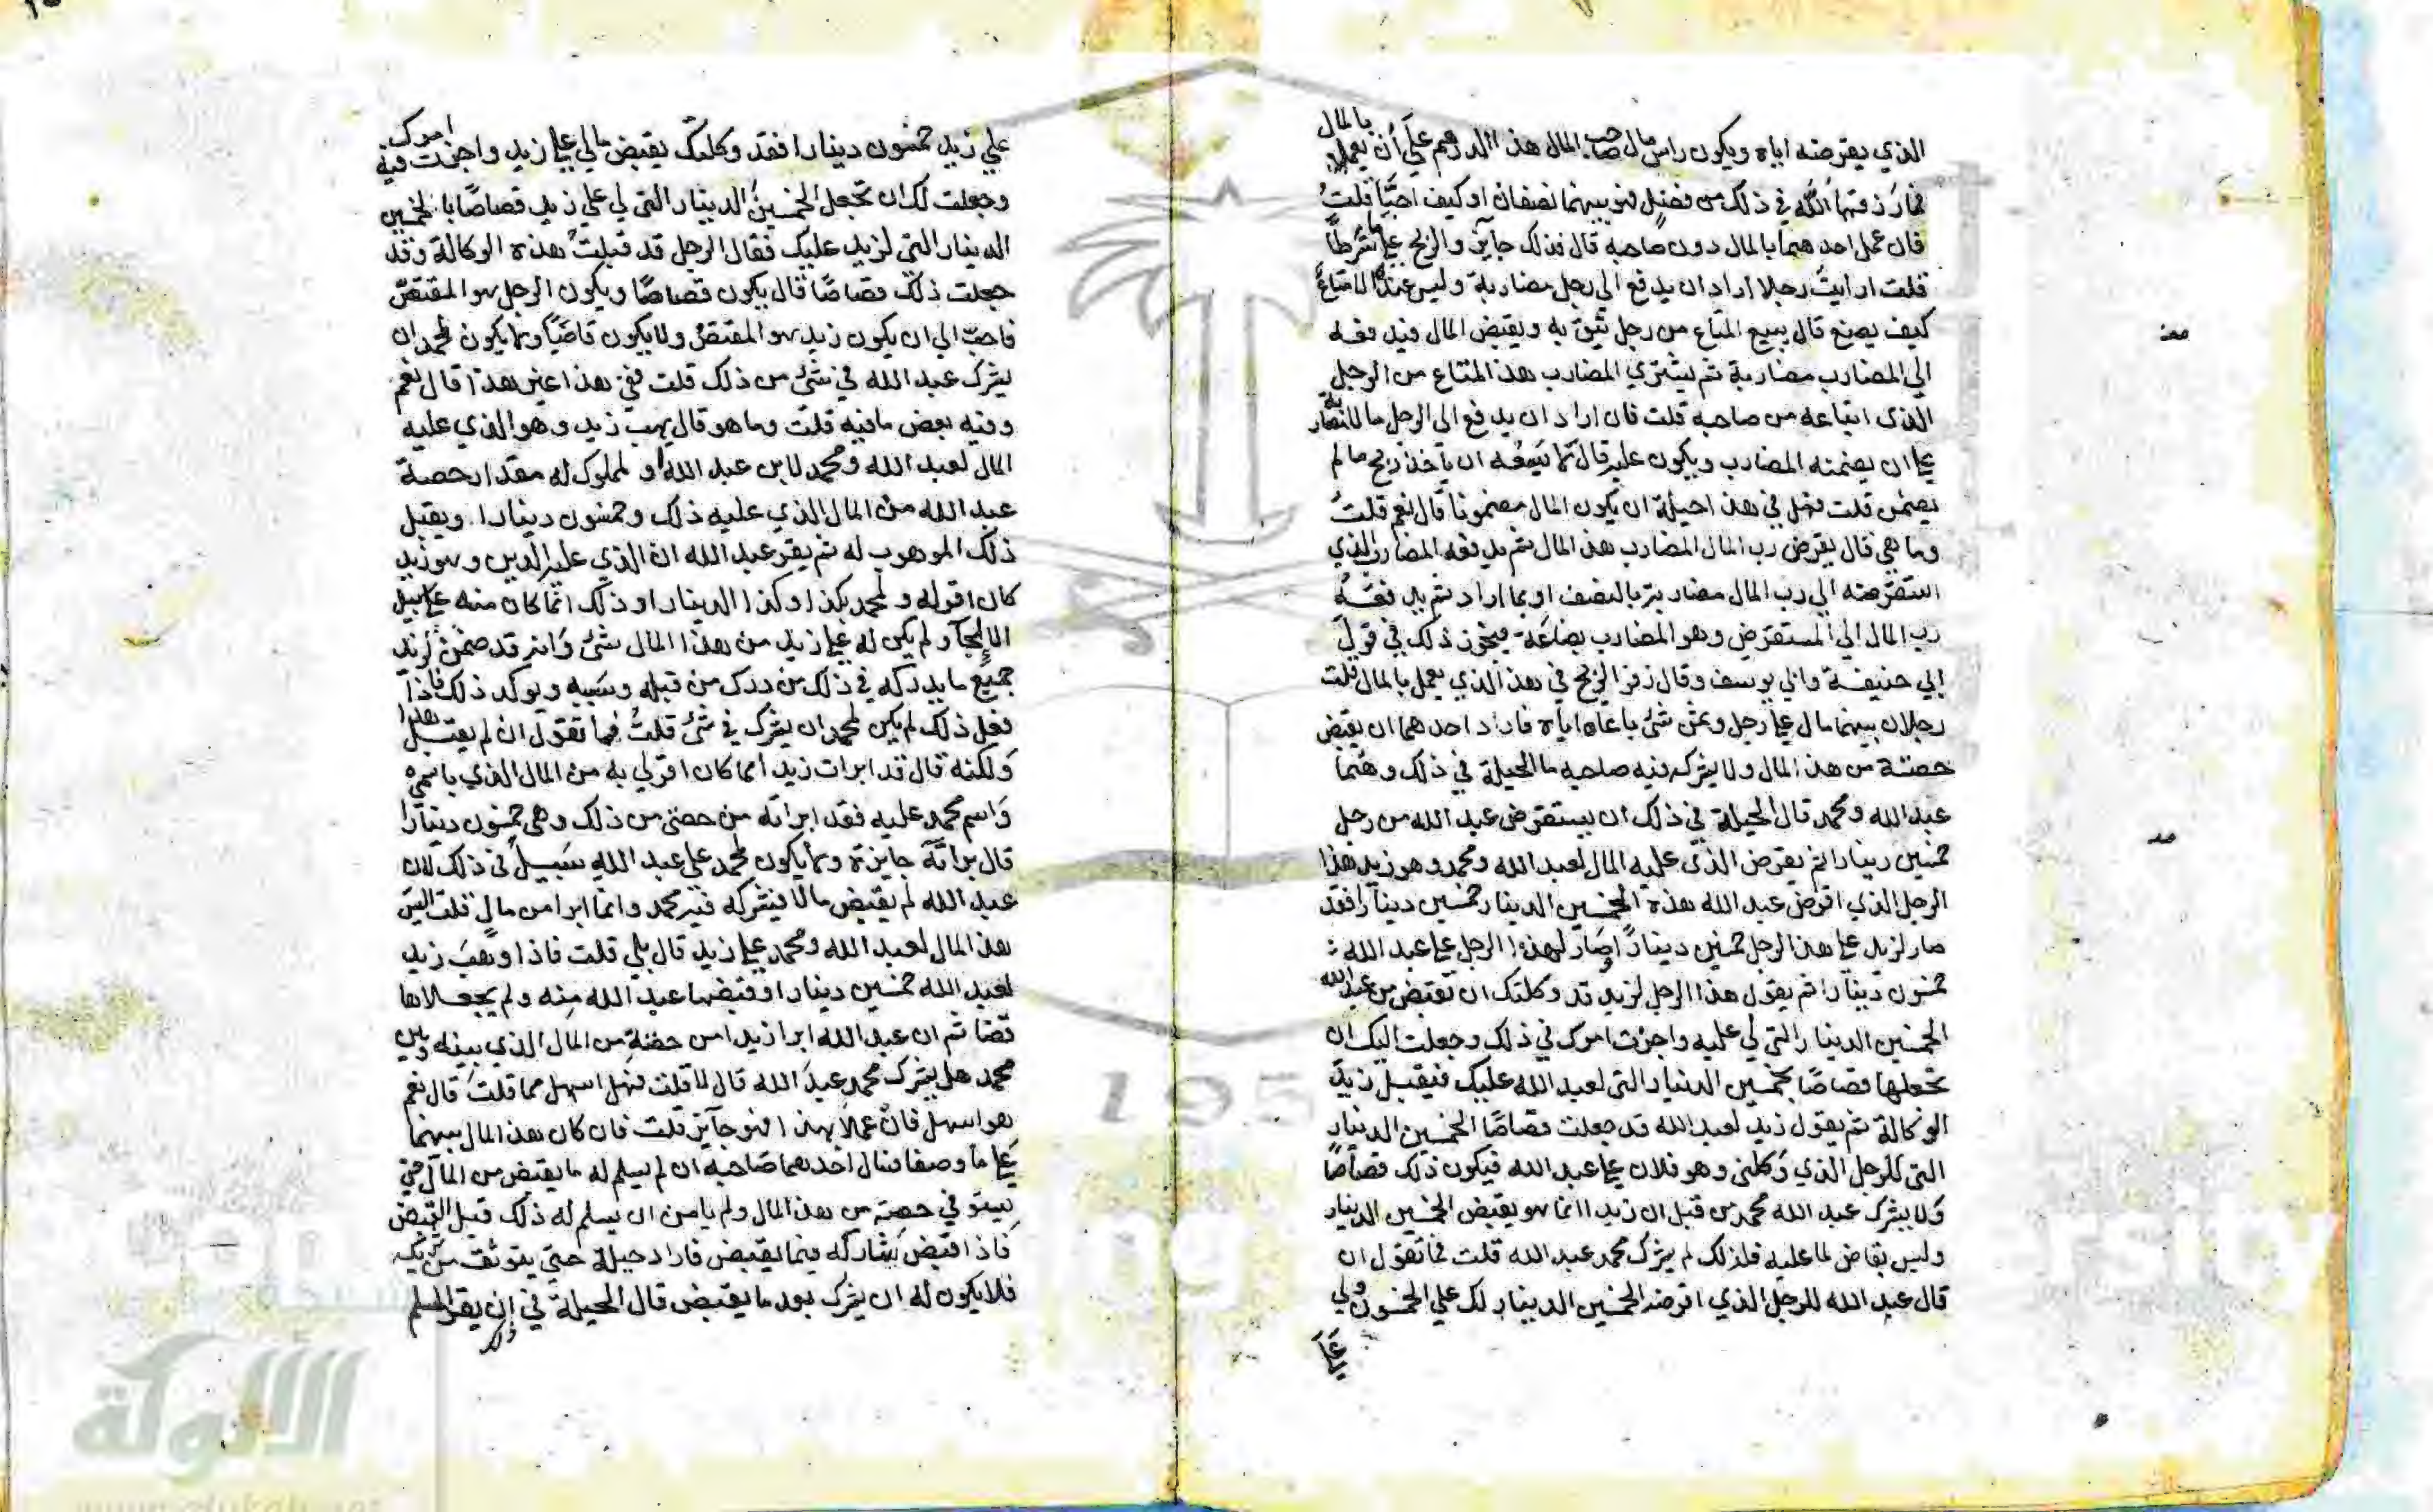 الذي يقرضه اياه ويكون راس مال صاحب المال هذا الدرهم علي أن يعملا بالمال
فما رزقهما الله في ذلك من فضل فهو بينهما نصفان او كيف احبا قلت
فان عمل احدهما بالمال دون صاحبه قال فذلك جايز والربح علي ما شرطا
قلت ارايت رجلا اراد ان يدفع الي رجل مضاربة وليس عنده الا متاع
كيف يصنع قال يبيع المتاع من رجل يثق به ويقبض المال فيدفعه
الي المضارب مضاربة ثم يشتري المضارب هذا المتاع من الرجل
الذي ابتاعه من صاحبه قلت فان اراد ان يدفع الي الرجل مالا مضاربة
علي ان يضمنه المضارب ويكون عليه قال لا يسعه ان ياخذ ربح ما لم
يضمن قلت فهل في هذا حيلة ان يكون المال مضمونا قال نعم قلت
وما هي قال يقرض رب المال المضارب هذا المال ثم يدفعه المضارب الذي
استقرضه الي رب المال مضاربة بالنصف او بما اراد ثم يدفعه
رب المال الي المستقرض وهو المضارب بضاعة فيجوز ذلك في قول
ابي حنيفة وابي يوسف وقال زفر الربح في هذا للذي يعمل بالمال قلت
رجلان بينهما مال علي رجل وثمن شئ باعاه اياه فاراد احدهما ان يقبض
حصته من هذا المال ولا يشركه فيه صاحبه ما الحيلة في ذلك وهما
عبد الله ومحمد قال الحيلة في ذلك ان يستقرض عبد الله من رجل
خمسين دينارا ثم يقرض الذي عليه المال لعبد الله ومحمد وهو زيد هذا
الرجل الذي اقرض عبد الله هذه الخمسين الدينار خمسين دينارا فقد
صار لزيد علي هذا الرجل خمسين دينارا وصار لهذا الرجل علي عبد الله
خمسون دينارا ثم يقول هذا الرجل لزيد قد وكلتك ان تقبض من عبد الله
الخمسين الدينار التي لي عليه واجزت امرك في ذلك وجعلت اليك ان
تجعلها قصاصا بخمسين الدينار التي لعبد الله عليك فيقبل زيد
الوكالة ثم يقول زيد لعبد الله قد جعلت قصاصا الخمسين الدينار
التي للرجل الذي وكلني وهو فلان علي عبد الله فيكون ذلك قصاصا
ولا يشرك عبد الله محمد من قبل ان زيدا انما هو يقبض الخمسين الدينار
وليس بقاض لما عليه فلذلك لم يشرك محمد عبد الله قلت فما تقول ان
قال عبد الله للرجل الذي اقرضه الخمسين الدينار لك علي الخمسون ولي
علي زيد خمسون دينارا فقد وكلتك بقبض مالي علي زيد واجزت فيه امرك
وجعلت لك ان تجعل الخمسين الدينار التي لي علي زيد قصاصا بالخمسين
الدينار التي لزيد عليك فقال الرجل قد قبلت هذه الوكالة وقد
جعلت ذلك قصاصا قال يكون قصاصا ويكون الرجل هو المقتص
فاحب الي ان يكون زيد هو المقتص ولا يكون قاضيا ولا يكون لمحمد ان
يشرك عبد الله في شئ من ذلك قلت ففي هذا غير هذا قال نعم
وفيه بعض ما فيه قلت وما هو قال يهب زيد وهو الذي عليه
المال لعبد الله ومحمد لابن عبد الله او لمملوك له مقدار حصة
عبد الله من المال الذي عليه ذلك وخمسون دينارا ويقبل
ذلك الموهوب له ثم يقر عبد الله ان الذي عليه الدين وهو زيد
كان اقر له ولمحمد بكذا وكذا الدينار وذلك انما كان منه علي سبيل
الالجآ ولم يكن له علي زيد من هذا المال شئ وانه قد ضمن لزيد
جميع ما يدركه في ذلك من درك من قبله وسببه ويوكد ذلك فاذا
فعل ذلك لم يكن لمحمد ان يشرك في شئ قلت فما تقول ان لم يقبل هذا
ولكنه قال قد ابرات زيدا مما كان اقر لي به من المال الذي باسمي
واسم محمد عليه فقد ابراته من حصتي من ذلك وهي خمسون دينارا
قال براته جايزة ولا يكون لمحمد علي عبد الله سبيل في ذلك لان
عبد الله لم يقبض مالا فيشركه فيه محمد وانما ابرا من مال قلت اليس
هذا المال لعبد الله ومحمد علي زيد قال بلي قلت فاذا وهب زيد
لعبد الله خمسين دينارا وقبضها عبد الله منه ولم يجعلاها
قضا ثم ان عبد الله ابرا زيدا من حصته من المال الذي بينه وبين
محمد هل يشرك محمد عبد الله قال لا قلت فهل اسهل مما قلت قال نعم
هو اسهل فان عملا بهذا فهو جآيز قلت فان كان هذا المال بينهما
علي ما وصفا فسال احدهما صاحبه ان لم يسلم له ما يقبض من المال حتي
يستوفي حصته من هذا المال ولم يامن ان يسلم له ذلك قبل القبض
فاذا اقبض يشاركه فيما يقبض فاراد حيلة حتي يتوثق من شريكه
فلا يكون له ان يشرك بعد ما يقبض قال الحيلة في ذلك ان يقر المسلم
الألوكة